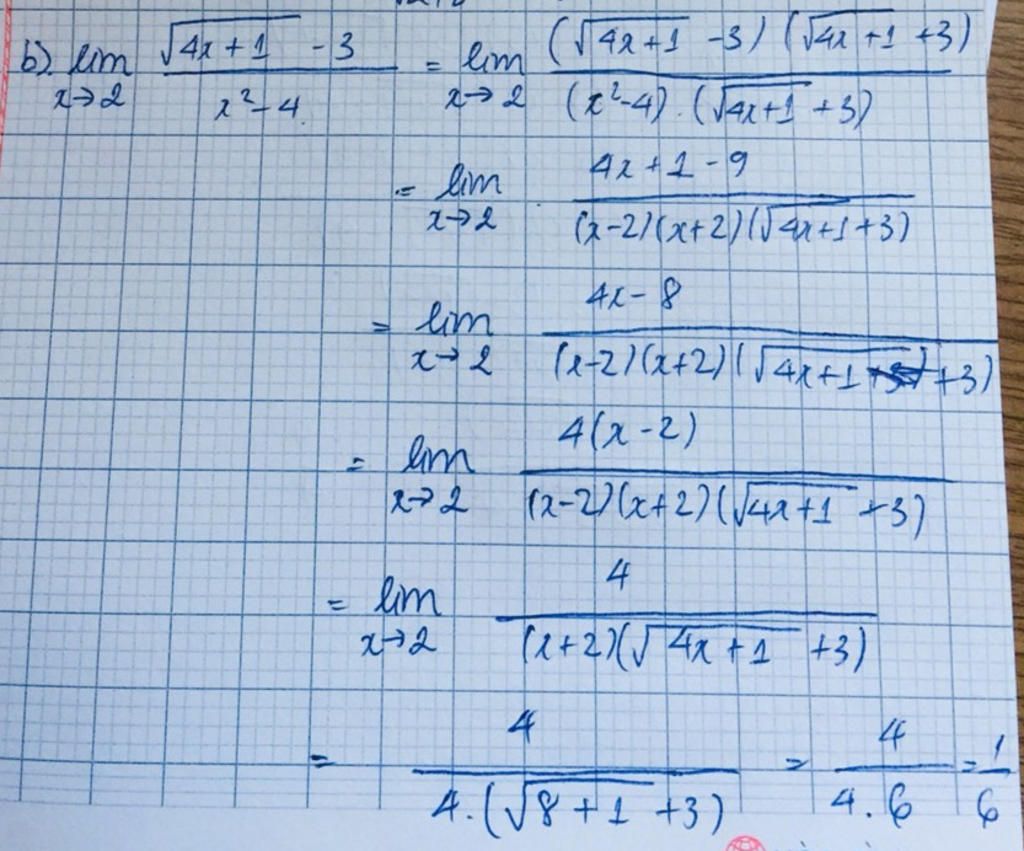 b). lim x→2 (√(4x+1) - 3)/(x²-4) = lim x→2 ((√(4x+1) - 3)(√(4x+1) + 3))/((x²-4).(√(4x+1) + 3))
= lim x→2 (4x+1-9)/((x-2)(x+2)(√(4x+1) + 3))
= lim x→2 (4x-8)/((x-2)(x+2)(√(4x+1) + 3))
= lim x→2 (4(x-2))/((x-2)(x+2)(√(4x+1) + 3))
= lim x→2 4/((x+2)(√(4x+1) + 3))
= 4/(4.(√(8+1) + 3)) = 4/(4.6) = 1/6